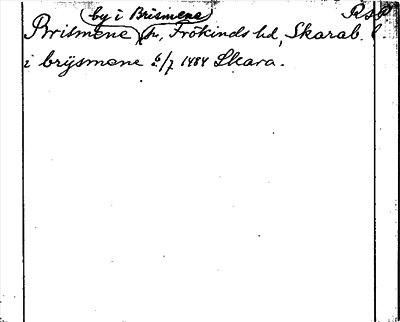 by i Brismene RsP
Brismene sn, Frökinds hd, Skarab. l.
i brÿsmone 6/7 1484 Skara.